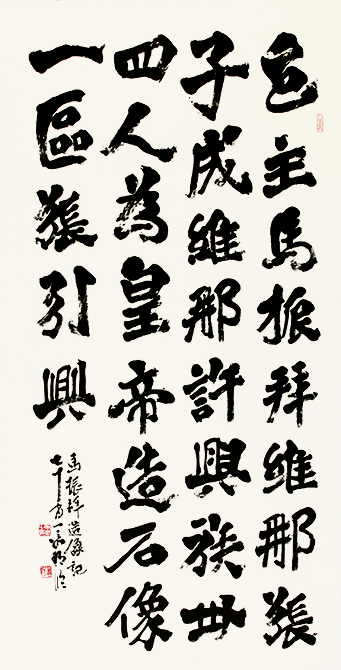 邑主馬振拜維那張
子成維那許興族卅
四人為皇帝造石像
一區張引興
馬振拜造像記